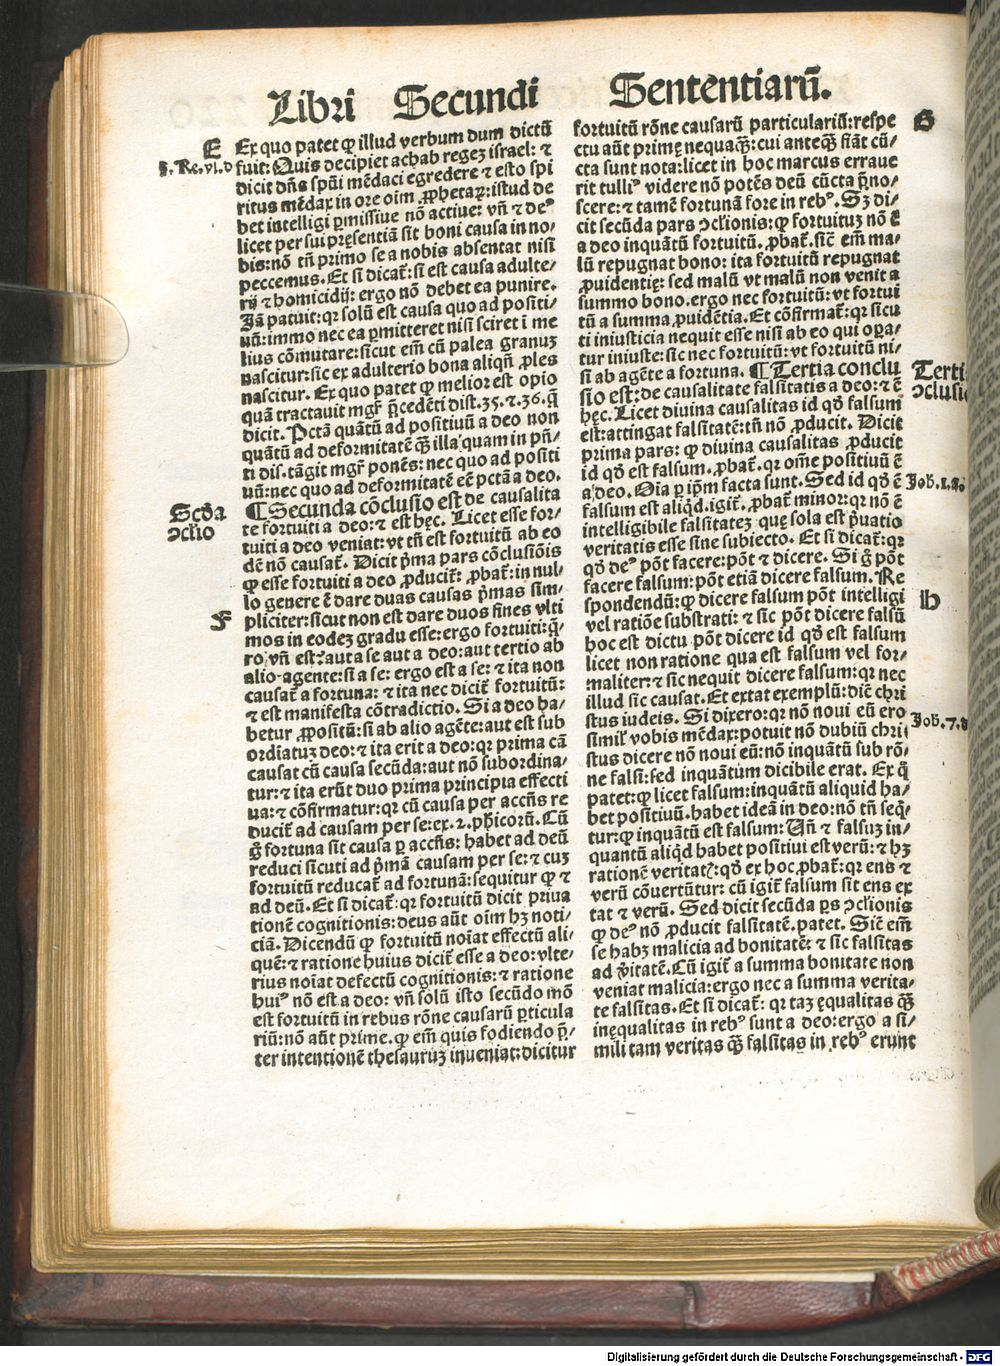 Libri Secundi Sententiarū.
E
Ex quo patet ꝙ illud verbum dum dictū
§. Re.vl.d
fuit: Quis decipiet achab regeȝ israel: ⁊
dicit dñs spūi mēdaci egredere ⁊ esto spi
ritus mēdax in ore oīm ꝓphetaꝝ: istud de
bet intelligi ꝑmissiue nō actiue: vñ ⁊ deꝰ
licet per sui pręsentiā sit boni causa in no/
bis: nō tñ primo se a nobis absentat nisi
peccemus. Et si dicat̄: si est causa adulte/
rij ⁊ homicidij: ergo nō debet ea punire.
Iā patuit: qꝛ solū est causa quo ad positi/
uū: immo nec ea ꝑmitteret nisi sciret ī me
lius cōmutare: sicut em̄ cū palea granuȝ
nascitur: sic ex adulterio bona aliqñ ꝓles
nascitur. Ex quo patet ꝙ melior est opio
quā tractauit mgr̄ p̄cedēti dist. 35. ⁊ .36. q̄
dicit. Pctā quātū ad positiuū a deo non
quātū ad deformitatē q̄ȝ illa quam in pñ/
ti dis. tāgit mgr̄ ponēs: nec quo ad positi
uū: nec quo ad deformitatē eē pctā a deo.
Scd̄a
ↄclīo
¶ Secunda cōclusio est de causalita
te fortuiti a deo: ⁊ est hęc. Licet esse for/
tuiti a deo veniat: vt tñ est fortuitū ab eo
dē nō causat̄. Dicit p̄ma pars cōclusiōis
ꝙ esse fortuiti a deo ꝓducit̄: ꝓbat̄: in nul/
lo genere ē dare duas causas p̄mas sim/
F
pliciter: sicut non est dare duos fines vlti
mos in eodeȝ gradu esse: ergo fortuiti: q̄/
ro vñ est? aut a se aut a deo: aut tertio ab
alio agente: si a se: ergo est a se: ⁊ ita non
causat̄ a fortuna: ⁊ ita nec dicit̄ fortuitū:
⁊ est manifesta cōtradictio. Si a deo ha/
betur ꝓpositū: si ab alio agēte: aut est sub
ordiatuȝ deo: ⁊ ita erit a deo: qꝛ prima cā
causat cū causa secūda: aut nō subordina/
tur: ⁊ ita erūt duo prima principia effecti
ua: ⁊ cōfirmatur: qꝛ cū causa per accñs re
ducit̄ ad causam per se: ex .2. pħicorū. Cū
g̊ fortuna sit causa ꝑ accñs: habet ad deū
reduci sicuti ad p̄mā causam per se: ⁊ cuȝ
fortuitū reducat̄ ad fortunā: sequitur ꝙ ⁊
ad deū. Et si dicat̄: qꝛ fortuitū dicit priua
tionē cognitionis: deus aūt oīm hȝ noti/
ciā. Dicendū ꝙ fortuitū noīat effectū ali/
quē: ⁊ ratione huius dicit̄ esse a deo: vlte/
rius noīat defectū cognitionis: ⁊ ratione
huiꝰ nō est a deo: vñ solū isto secūdo mō
est fortuitū in rebus rōne causarū ꝑticula
riū: nō aūt prime. ꝙ em̄ quis fodiendo p̄/
ter intentionē thesauruȝ inueniat: dicitur
fortuitū rōne causarū particulariū: respe
G
ctu aūt primę nequaq̄ȝ: cui anteq̄ȝ fiāt cū/
cta sunt nota: licet in hoc marcus erraue
rit tulliꝰ videre nō potēs deū cūcta p̄no/
scere: ⁊ tamē fortunā fore in rebꝰ. Sȝ di/
cit secūda pars ↄclīonis: ꝙ fortuituȝ nō ē
a deo inquātū fortuitū. ꝓbat̄. sic̄ em̄ ma/
lū repugnat bono: ita fortuitū repugnat
ꝓuidentię: sed malū vt malū non venit a
summo bono. ergo nec fortuitū: vt fortui
tū a summa ꝓuidētia. Et cōfirmat̄: qꝛ sicu
ti iniusticia nequit esse nisi ab eo qui oꝑa/
tur iniuste: sic nec fortuitū: vt fortuitū ni/
si ab agēte a fortuna. ¶ Tertia conclu
Terti
ↄclusi
sio est: de causalitate falsitatis a deo: ⁊ ē
hęc. Licet diuina causalitas id qd̄ falsum
est: attingat falsitatē: tñ nō ꝓducit. Dicit
prima pars: ꝙ diuina causalitas ꝓducit
id qd̄ est falsum. ꝓbat̄. qꝛ om̄e positiuū ē
a deo. Oīa ꝑ ip̄m facta sunt. Sed id qd̄ ē
Joh̄.1.a.
falsum est aliqd̄. igit̄. ꝓbat̄ minor: qꝛ nō ē
intelligibile falsitateȝ quę sola est p̄uatio
veritatis esse sine subiecto. Et si dicat̄: qꝛ
qd̄ deꝰ pōt facere: pōt ⁊ dicere. Si g̊ pōt
facere falsum: pōt etiā dicere falsum. Re
spondendū: ꝙ dicere falsum pōt intelligi
h
vel ratiōe substrati: ⁊ sic pōt dicere falsū
hoc est dictu pōt dicere id qd̄ est falsum
licet non ratione qua est falsum vel for/
maliter: ⁊ sic nequit dicere falsum: qꝛ nec
illud sic causat. Et extat exemplū: diē chri
stus iudeis. Si dixero: qꝛ nō noui eū ero
Joh̄.7.
simil̄ vobis mēdax: potuit nō dubiū chri
stus dicere nō noui eū: nō inquātū sub rō/
ne falsi: sed inquātum dicibile erat. Ex q̊
patet: ꝙ licet falsum: inquātū aliquid ha/
bet positiuū. habet ideā in deo: nō tñ seq̄/
tur: ꝙ inquātū est falsum: Vñ ⁊ falsuȝ in/
quantū aliqd̄ habet positiui est verū: ⁊ hȝ
rationē veritat̄: qd̄ ex hoc ꝓbat̄: qꝛ ens ⁊
verū cōuertūtur: cū igit̄ falsum sit ens ex
tat ⁊ verū. Sed dicit secūda ꝑs ↄclīonis
ꝙ deꝰ nō ꝓducit falsitatē. patet. Sic̄ em̄
se habȝ malicia ad bonitatē: ⁊ sic falsitas
ad v̄itatē. Cū igit̄ a summa bonitate non
veniat malicia: ergo nec a summa verita/
te falsitas. Et si dicat̄: qꝛ taȝ ęqualitas q̄ȝ
inęqualitas in rebꝰ sunt a deo: ergo a si/
mili tam veritas q̄ȝ falsitas in rebꝰ erunt
Digitalisierung gefördert durch die Deutsche Forschungsgemeinschaft - DFG